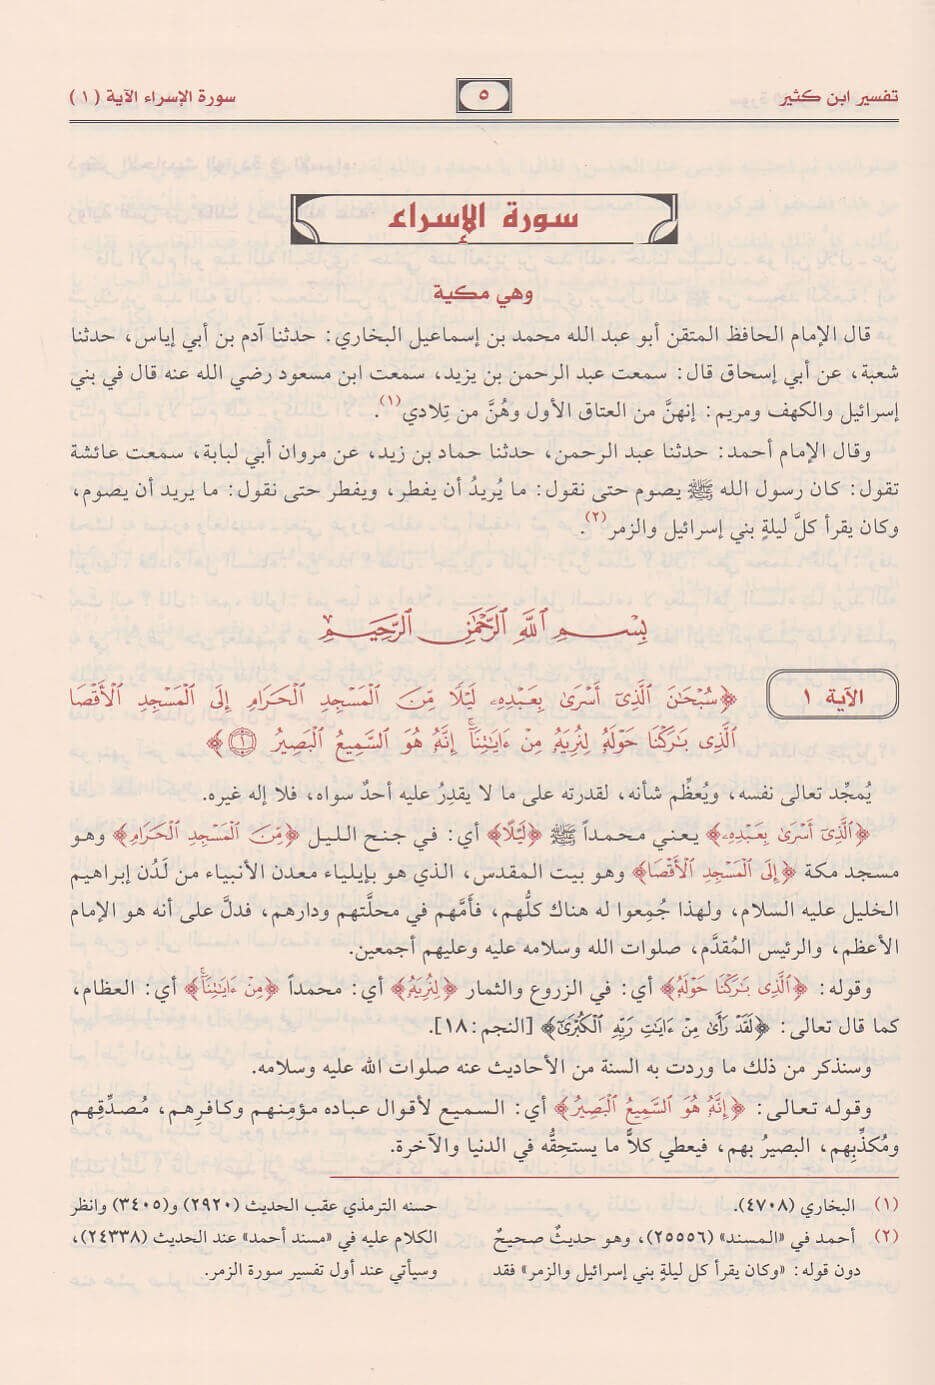 تفسير ابن كثير
٥
سورة الإسراء الآية (١)
سورة الإسراء
وهي مكية
قال الإمام الحافظ المتقن أبو عبد الله محمد بن إسماعيل البخاري: حدثنا آدم بن أبي إياس، حدثنا
شعبة، عن أبي إسحاق قال: سمعت عبد الرحمن بن يزيد، سمعت ابن مسعود رضي الله عنه قال في بني
إسرائيل والكهف ومريم: إنهنَّ من العتاق الأول وهُنَّ من تِلادي(١).
وقال الإمام أحمد: حدثنا عبد الرحمن، حدثنا حماد بن زيد، عن مروان أبي لبابة، سمعت عائشة
تقول: كان رسول الله ﷺ يصوم حتى نقول: ما يُريدُ أن يفطر، ويفطر حتى نقول: ما يريد أن يصوم،
وكان يقرأ كلَّ ليلةٍ بني إسرائيل والزمر(٢).
بِسْمِ ٱللَّهِ ٱلرَّحْمَٰنِ ٱلرَّحِيمِ
الآية ١
﴿سُبْحَٰنَ ٱلَّذِىٓ أَسْرَىٰ بِعَبْدِهِۦ لَيْلًا مِّنَ ٱلْمَسْجِدِ ٱلْحَرَامِ إِلَى ٱلْمَسْجِدِ ٱلْأَقْصَا
ٱلَّذِى بَٰرَكْنَا حَوْلَهُۥ لِنُرِيَهُۥ مِنْ ءَايَٰتِنَآ ۚ إِنَّهُۥ هُوَ ٱلسَّمِيعُ ٱلْبَصِيرُ ١﴾
يُمجِّد تعالى نفسه، ويُعظِّم شأنه، لقدرته على ما لا يقدِرُ عليه أحدٌ سواه، فلا إله غيره.
﴿ٱلَّذِىٓ أَسْرَىٰ بِعَبْدِهِۦ﴾ يعني محمداً ﷺ ﴿لَيْلًا﴾ أي: في جنح الليل ﴿مِّنَ ٱلْمَسْجِدِ ٱلْحَرَامِ﴾ وهو
مسجد مكة ﴿إِلَى ٱلْمَسْجِدِ ٱلْأَقْصَا﴾ وهو بيت المقدس، الذي هو بإيلياء معدن الأنبياء من لَدُن إبراهيم
الخليل عليه السلام، ولهذا جُمِعوا له هناك كلُّهم، فأَمَّهم في محلَّتهم ودارهم، فدلَّ على أنه هو الإمام
الأعظم، والرئيس المُقدَّم، صلوات الله وسلامه عليه وعليهم أجمعين.
وقوله: ﴿ٱلَّذِى بَٰرَكْنَا حَوْلَهُۥ﴾ أي: في الزروع والثمار ﴿لِنُرِيَهُۥ﴾ أي: محمداً ﴿مِنْ ءَايَٰتِنَآ ۚ﴾ أي: العظام،
كما قال تعالى: ﴿لَقَدْ رَأَىٰ مِنْ ءَايَٰتِ رَبِّهِ ٱلْكُبْرَىٰٓ﴾ [النجم: ١٨].
وسنذكر من ذلك ما وردت به السنة من الأحاديث عنه صلوات الله عليه وسلامه.
وقوله تعالى: ﴿إِنَّهُۥ هُوَ ٱلسَّمِيعُ ٱلْبَصِيرُ﴾ أي: السميع لأقوال عباده مؤمِنهم وكافرِهم، مُصدِّقِهم
ومُكذِّبِهم، البصيرُ بهم، فيعطي كلاًّ ما يستحقُّه في الدنيا والآخرة.
(١) البخاري (٤٧٠٨).
(٢) أحمد في «المسند» (٢٥٥٥٦)، وهو حديثٌ صحيحٌ
دون قوله: «وكان يقرأ كل ليلةٍ بني إسرائيل والزمر» فقد
حسنه الترمذي عقب الحديث (٢٩٢٠) و(٣٤٠٥) وانظر
الكلام عليه في «مسند أحمد» عند الحديث (٢٤٣٣٨)،
وسيأتي عند أول تفسير سورة الزمر.